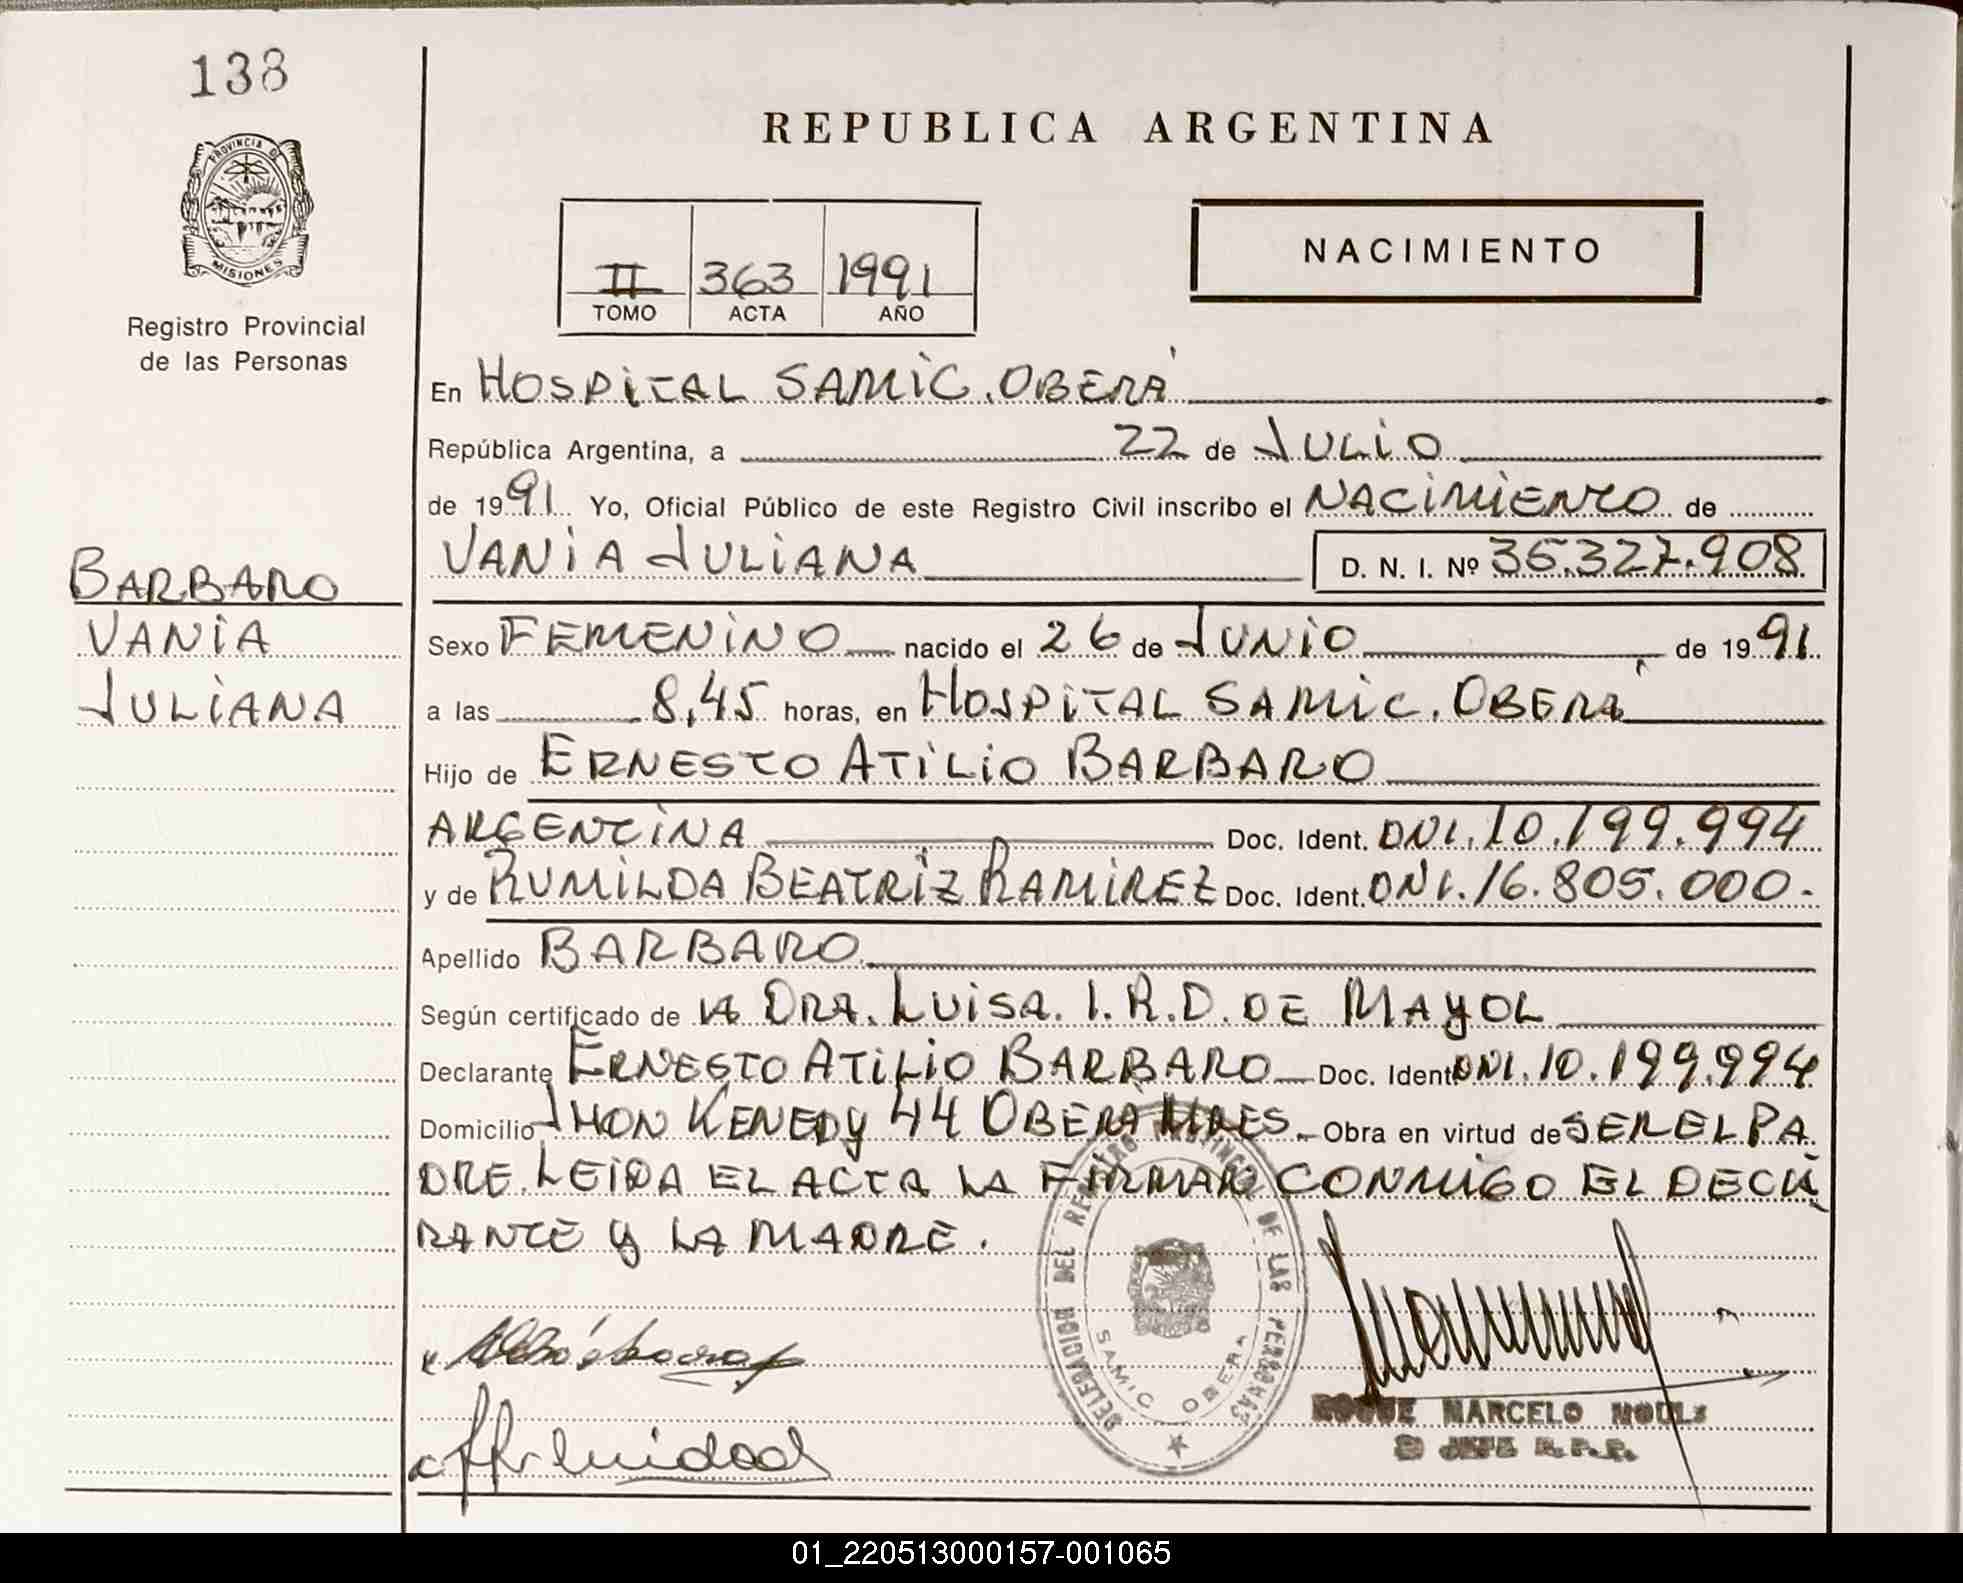 138
REPUBLICA ARGENTINA
PROVINCIA DE
MISIONES
Registro Provincial
de las Personas
II 363 1991
TOMO ACTA AÑO
NACIMIENTO
En HOSPITAL SAMIC. OBERÁ
República Argentina, a 22 de JULIO
de 1991 Yo, Oficial Público de este Registro Civil inscribo el NACIMIENTO de
VANIA JULIANA D. N. I. Nº 36.327.908
BARBARO
VANIA
JULIANA
Sexo FEMENINO nacido el 26 de JUNIO de 1991
a las 8,45 horas, en HOSPITAL SAMIC. OBERÁ
Hijo de ERNESTO ATILIO BARBARO
ARGENTINA Doc. Ident. DNI. 10.199.994
y de RUMILDA BEATRIZ RAMIREZ Doc. Ident. DNI. 16.805.000.
Apellido BARBARO
Según certificado de LA DRA. LUISA. I. R. D. DE MAYOL
Declarante ERNESTO ATILIO BARBARO Doc. Ident DNI. 10.199.994
Domicilio JHON KENEDY 44 OBERA MNES. Obra en virtud de SER EL PA
DRE. LEIDA EL ACTA LA FIRMAN CONMIGO EL DECLA
RANTE Y LA MADRE.
DELEGACION DEL REGISTRO DE LAS PERSONAS
SAMIC OBERA
ROQUE MARCELO
JEFE R.P.P.
01_220513000157-001065